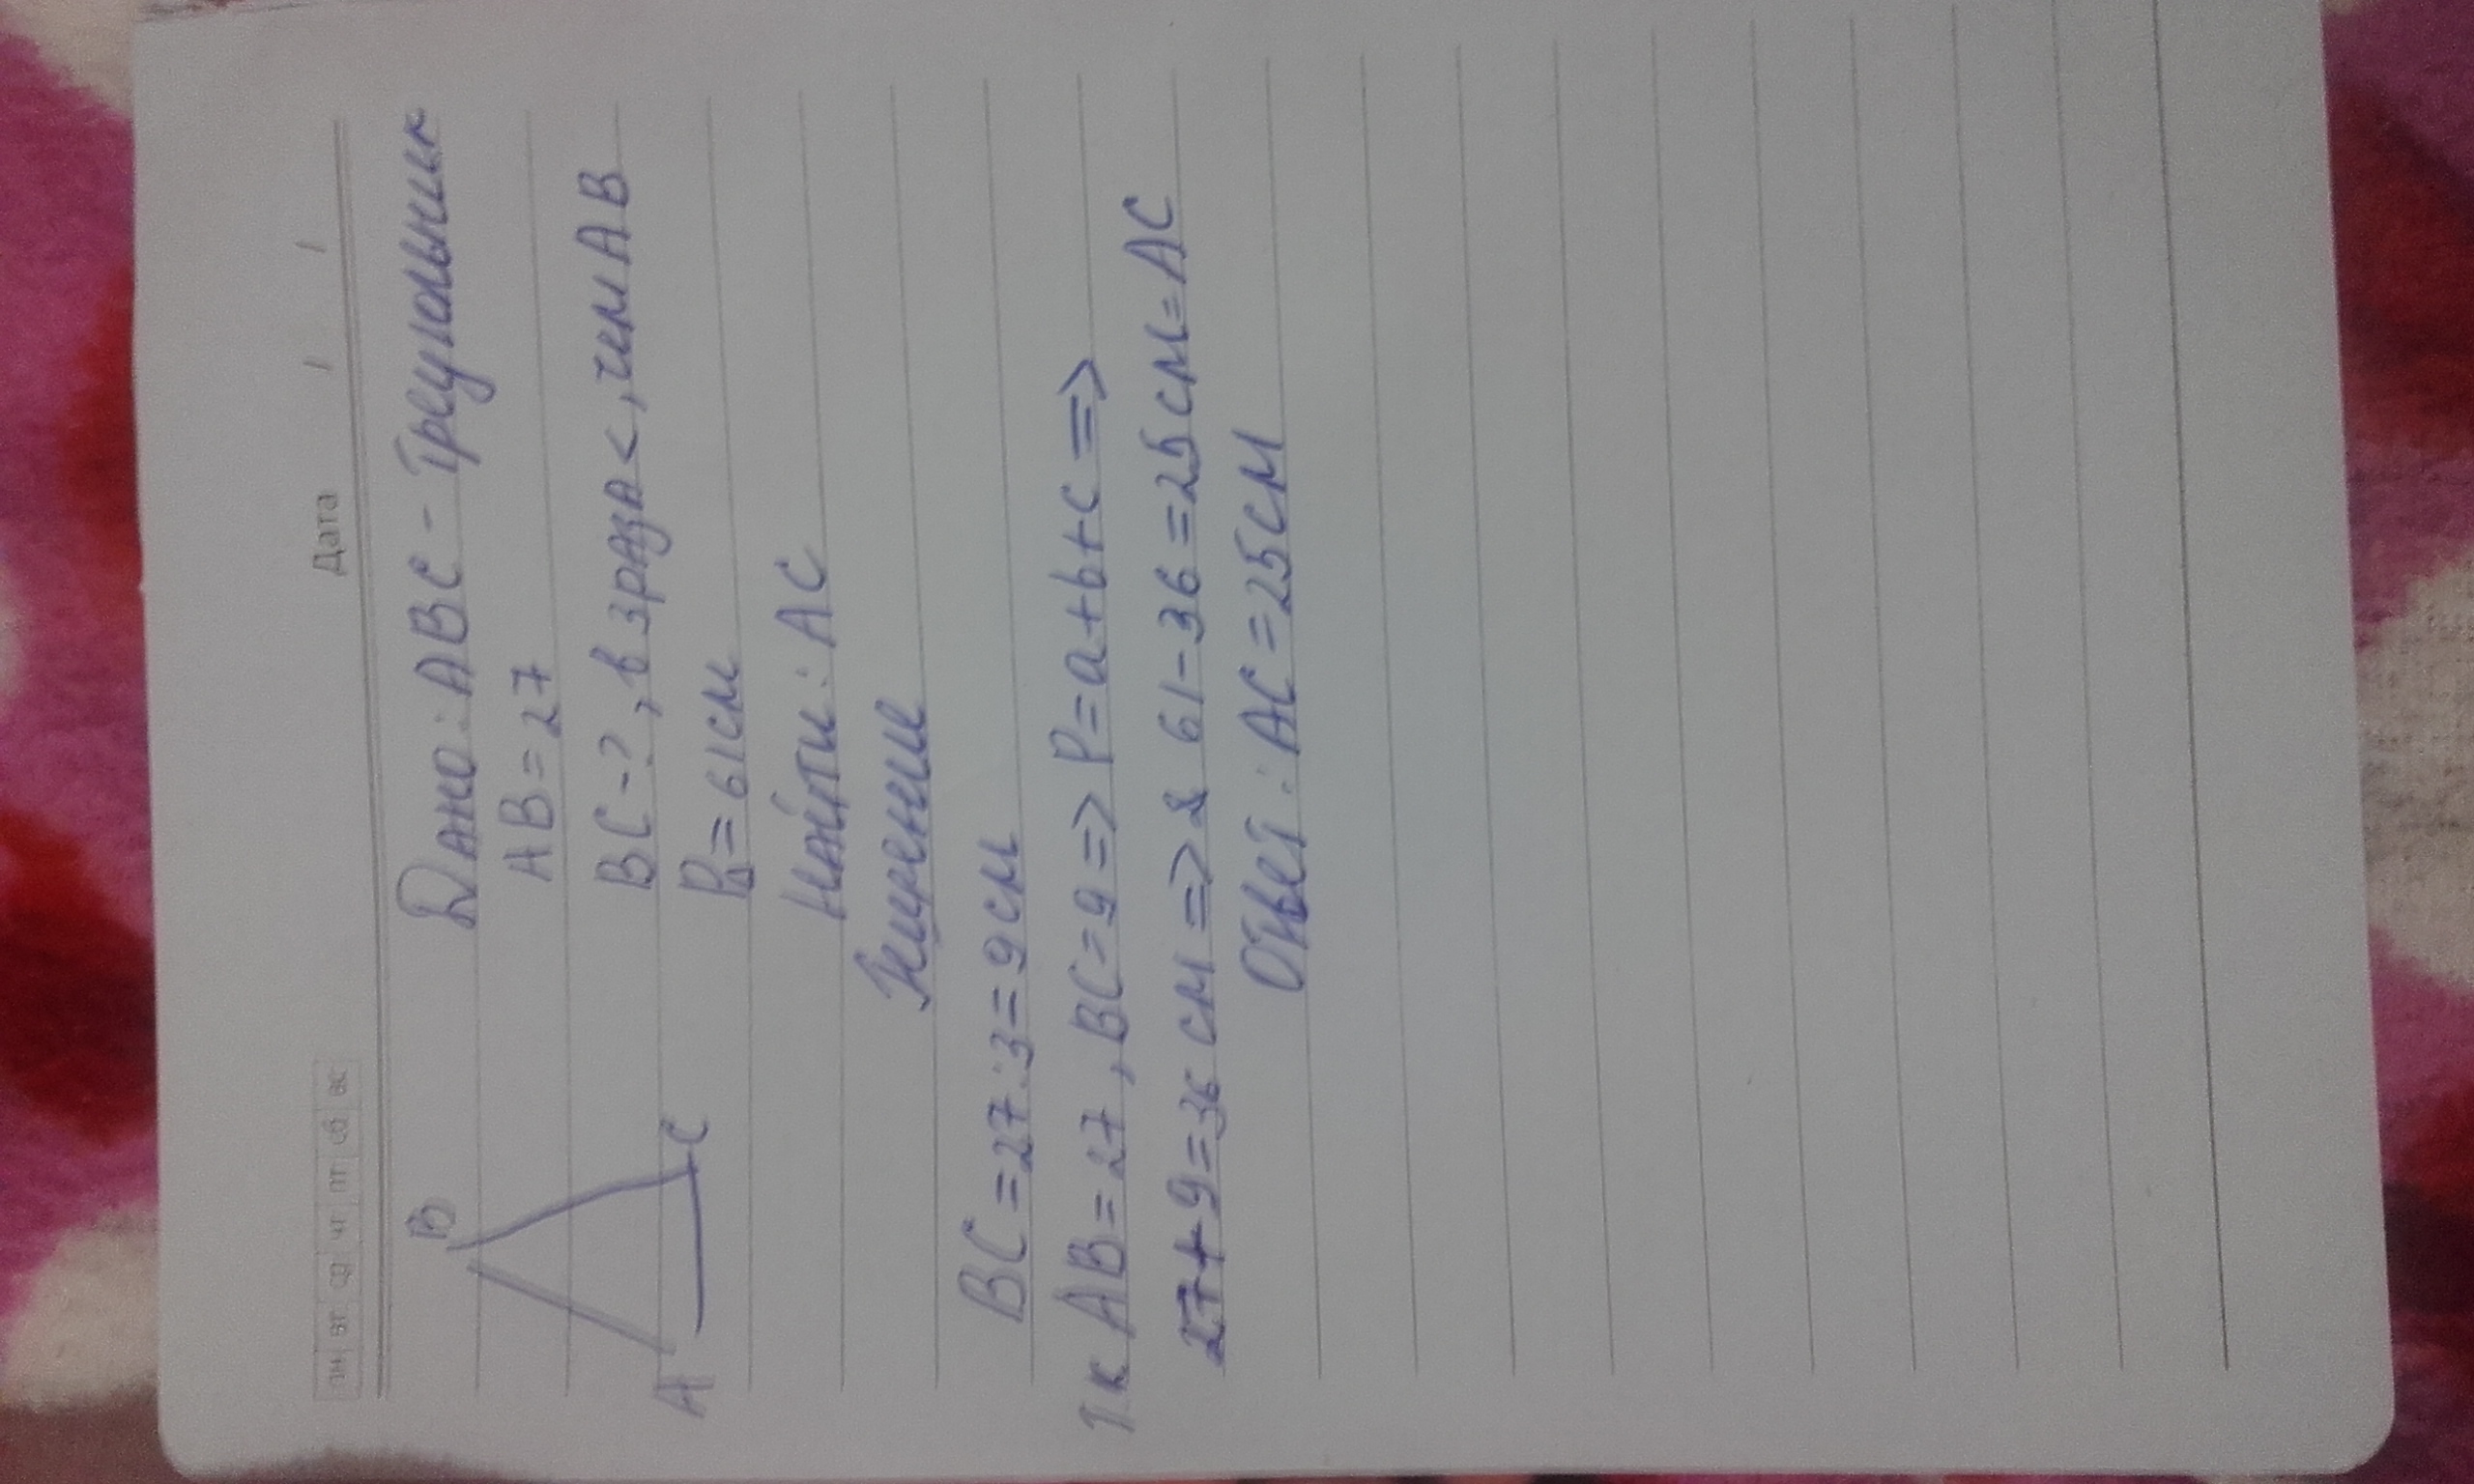 пн вт ср чт пт сб вс
Дата / /
Дано: ABC - Треугольник
AB = 27
BC - ?, в 3 раза <, чем AB
P△ = 61 см
Найти: AC
B
A
C
Решение
BC = 27:3 = 9 см
Тк AB = 27, BC = 9 => P = a + b + c =>
27 + 9 = 36 см => 61 - 36 = 25 см = AC
Ответ: AC = 25 см